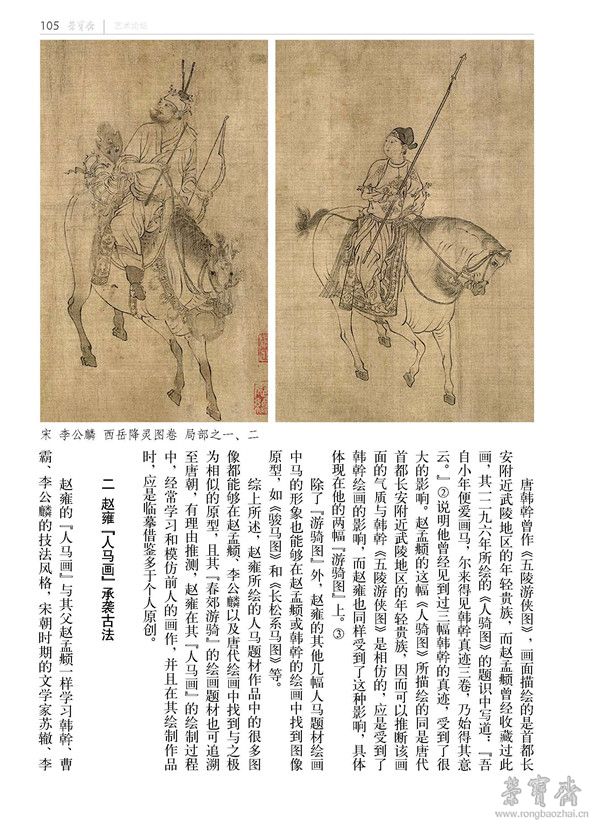 105 荣宝斋 艺术论坛
宋 李公麟 西岳降灵图卷 局部之一、二
唐韩幹曾作《五陵游侠图》，画面描绘的是首都长
安附近武陵地区的年轻贵族，而赵孟頫曾经收藏过此
画，其一二九六年所绘的《人骑图》的题识中写道：『吾
自小年便爱画马，尔来得见韩幹真迹三卷，乃始得其意
云。』②说明他曾经见到过三幅韩幹的真迹，受到了很
大的影响。赵孟頫的这幅《人骑图》所描绘的同是唐代
首都长安附近武陵地区的年轻贵族，因而可以推断该画
面的气质与韩幹《五陵游侠图》是相仿的，应是受到了
韩幹绘画的影响，而赵雍也同样受到了这种影响，具体
体现在他的两幅『游骑图』上。③
除了『游骑图』外，赵雍的其他几幅人马题材绘画
中马的形象也能够在赵孟頫或韩幹的绘画中找到图像
原型，如《骏马图》和《长松系马图》等。
综上所述，赵雍所绘的人马题材作品中的很多图
像都能够在赵孟頫、李公麟以及唐代绘画中找到与之极
为相似的原型，且其『春郊游骑』的绘画题材也可追溯
至唐朝，有理由推测，赵雍在其『人马画』的绘制过程
中，经常学习和模仿前人的画作，并且在其绘制作品
时，应是临摹借鉴多于个人原创。
二 赵雍『人马画』承袭古法
赵雍的『人马画』与其父赵孟頫一样学习韩幹、曹
霸、李公麟的技法风格，宋朝时期的文学家苏辙、李
荣宝斋
www.rongbaozhai.cn